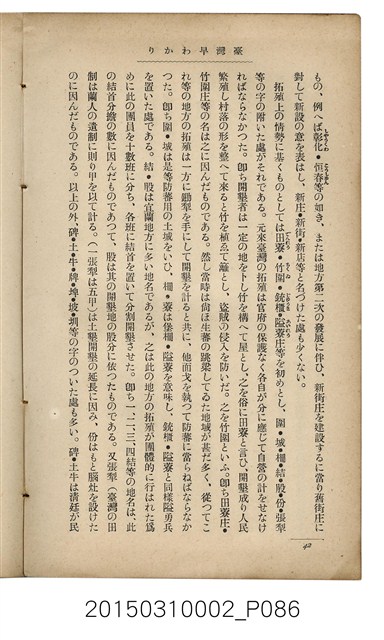 臺灣早わかり
もの、例へば彰化・恒春等の如き、または地方第二次の發展に伴ひ、新街庄を建設するに當り舊街庄に
對して新設の意を表はし、新庄・新街・新店等と名づけた處も少くない。
拓殖上の情勢に基くものとしては田寮・竹圍・銃櫃・隘寮庄等を初めとし、圍・城・柵・結・股・份・張犁
等の字の附いた處がそれである。元來臺灣の拓殖は官府の保護なく各自が分に應じて自營の計をせなけ
ればならなかつた。卽ち開墾者は一定の地を卜し竹を構へて屋とし、之を俗に田寮と言ひ、開墾成り人民
繁殖し村落の形を整へて來ると竹を植ゑて籬とし、盜賊の侵入を防いだ。之を竹圍といふ。卽ち田寮庄・
竹圍庄等の名は之に因んだものである。然し當時は尙ほ生蕃の跳梁してゐた地域が甚だ多く、從つてこ
れ等の地方の拓殖は一方に鋤犁を手にして開墾を計ると共に、他面戈を執つて防蕃に當らねばならなか
つた。卽ち圍・城は是等防蕃用の土城をいひ、柵・寮は堡柵・隘寮を意味し、銃櫃・隘寮と同樣隘勇兵
を置いた處である。結・股は宜蘭地方に多い地名であるが、之は此の地方の拓殖が團體的に行はれた爲
めに此の團員を十數班に分ち、各班に結首を置いて分割開墾させた。卽ち一、二、三、四結等の地名は、此
の結首分擔の數に因んだものであつて、股は其の開墾地の股分に依つたものである。又張犁(臺灣の田
制は蘭人の遺制に則り甲を以て計る。(一張犁は五甲)は土墾開墾の延長に因み、份はもと腦灶を設けた
のに因んだものである。以上の外、碑・土・牛・牌・埤・坡・圳等の字のついた處も多い。碑・土牛は淸廷が民
42
20150310002_P086